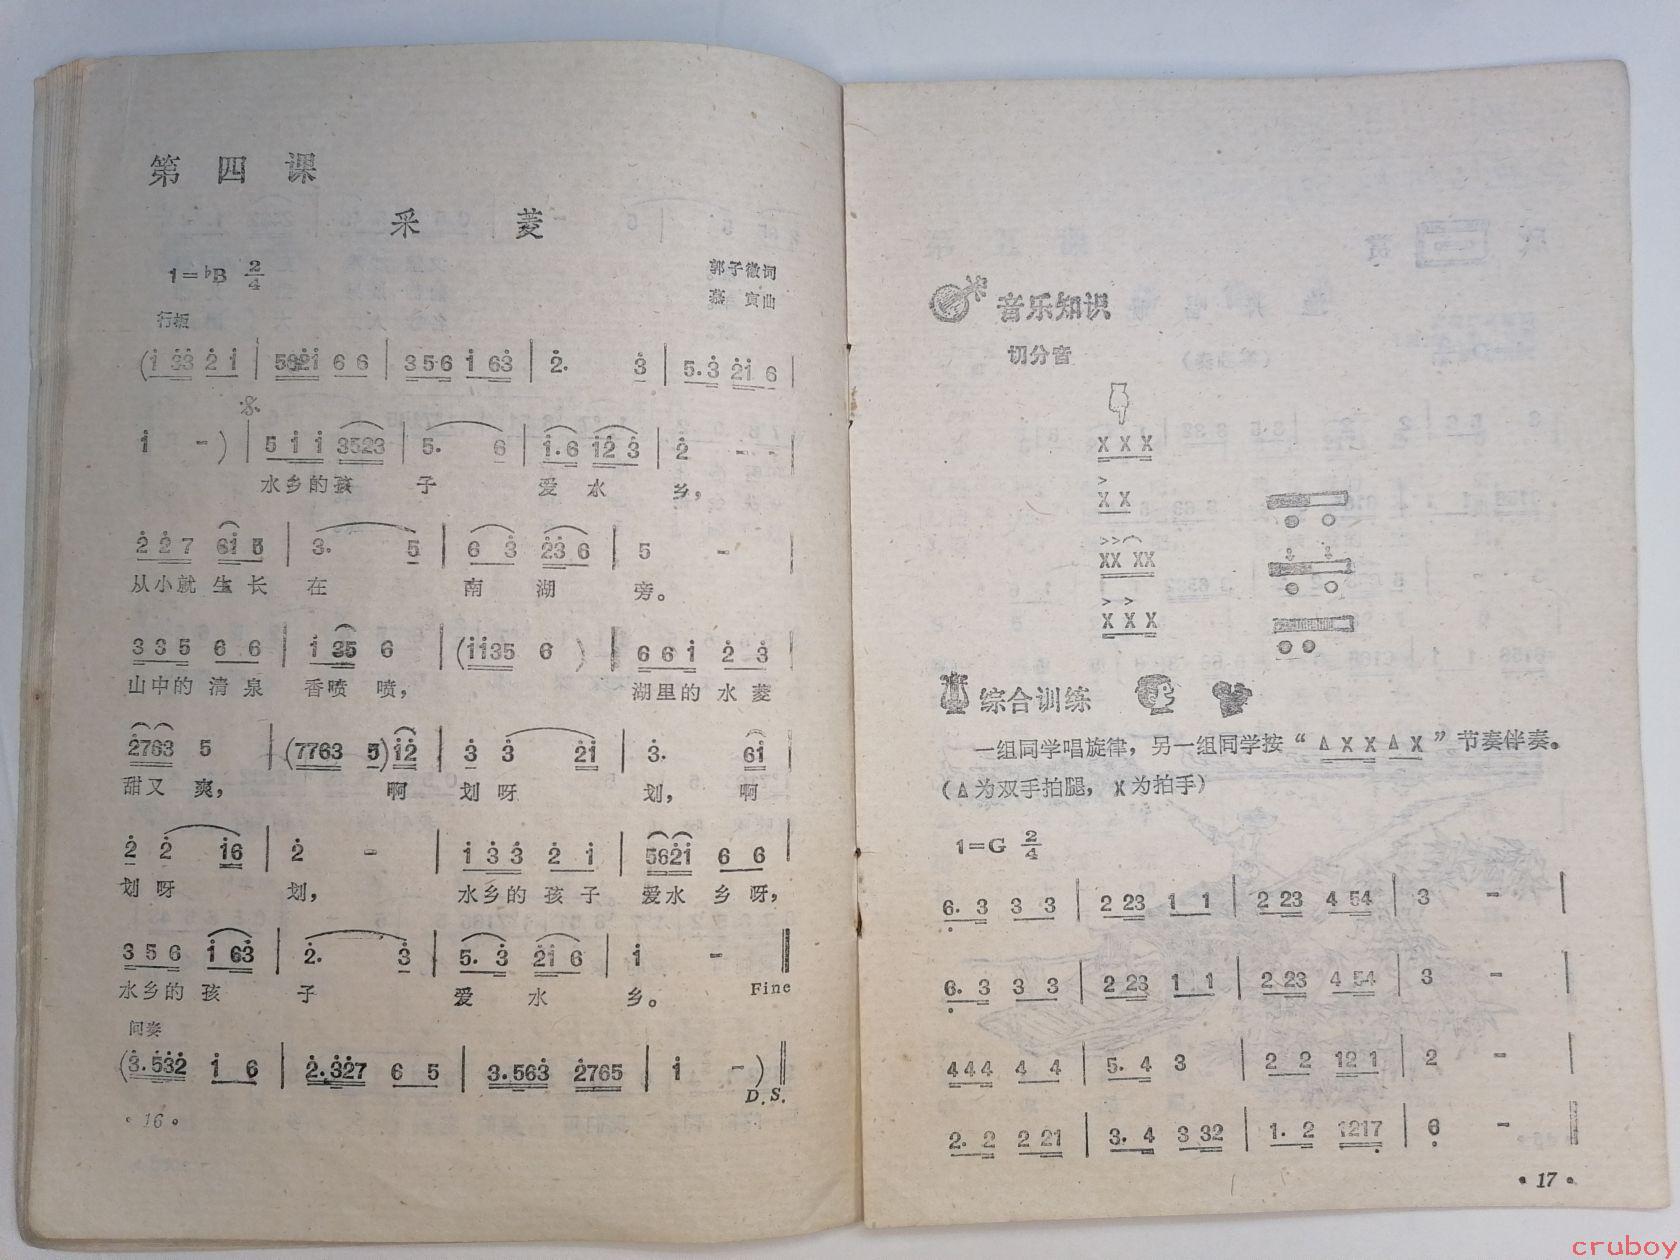 第四课
采菱
1=♭B 2/4
郭子徽词
燕寅曲
行板
(i 3̇3̇ 2̇ i | 562̇i 6 6 | 3 5 6 i 63̇ | 2̇. 3̇ | 5.3̇ 2̇i 6 |
i - ) | 5 i i 3523 | 5. 6 | i.6 i2̇ 3̇ | 2̇ - - |
水乡的孩 子 爱 水 乡，
2̇ 2̇ 7 6i 5 | 3. 5 | 6 3̇ 2̇3̇ 6 | 5 - |
从小就 生 长 在 南 湖 旁。
3 3 5 6 6 | i 35 6 | (ii35 6 ) | 6 6 i 2̇ 3̇ |
山中的 清 泉 香喷 喷， 湖里的 水 菱
2̇763 5 | (7763 5)i2̇ | 3̇ 3̇ 2̇i | 3̇. 6i |
甜又 爽， 啊 划 呀 划， 啊
2̇ 2̇ i6 | 2̇ - | i 3̇ 3̇ 2̇ i | 562̇i 6 6 |
划 呀 划， 水乡的 孩 子 爱水 乡 呀，
3 5 6 i 63̇ | 2̇. 3̇ | 5. 3̇ 2̇i 6 | i - ‖
水乡的 孩 子 爱 水 乡。 Fine
间奏
(3̇.5̇3̇2̇ i 6 | 2̇.3̇2̇7 6 5 | 3.563̇ 2̇765 | i - ) ‖
D.S.
·16·
音乐知识
切分音
X X X
>
X X
>>
XX XX
> >
X X X
综合训练
一组同学唱旋律，另一组同学按“△ X X △ X”节奏伴奏。
(△为双手拍腿，X为拍手)
1=G 2/4
6̣. 3 3 3 | 2 23 1 1 | 2 23 4 54 | 3 - |
6̣. 3 3 3 | 2 23 1 1 | 2 23 4 54 | 3 - |
4 4 4 4 4 | 5. 4 3 | 2 2 12 1 | 2 - |
2. 2 2 21 | 3. 4 3 32 | 1. 2 1217̣ | 6̣ - ‖
·17·
cruboy